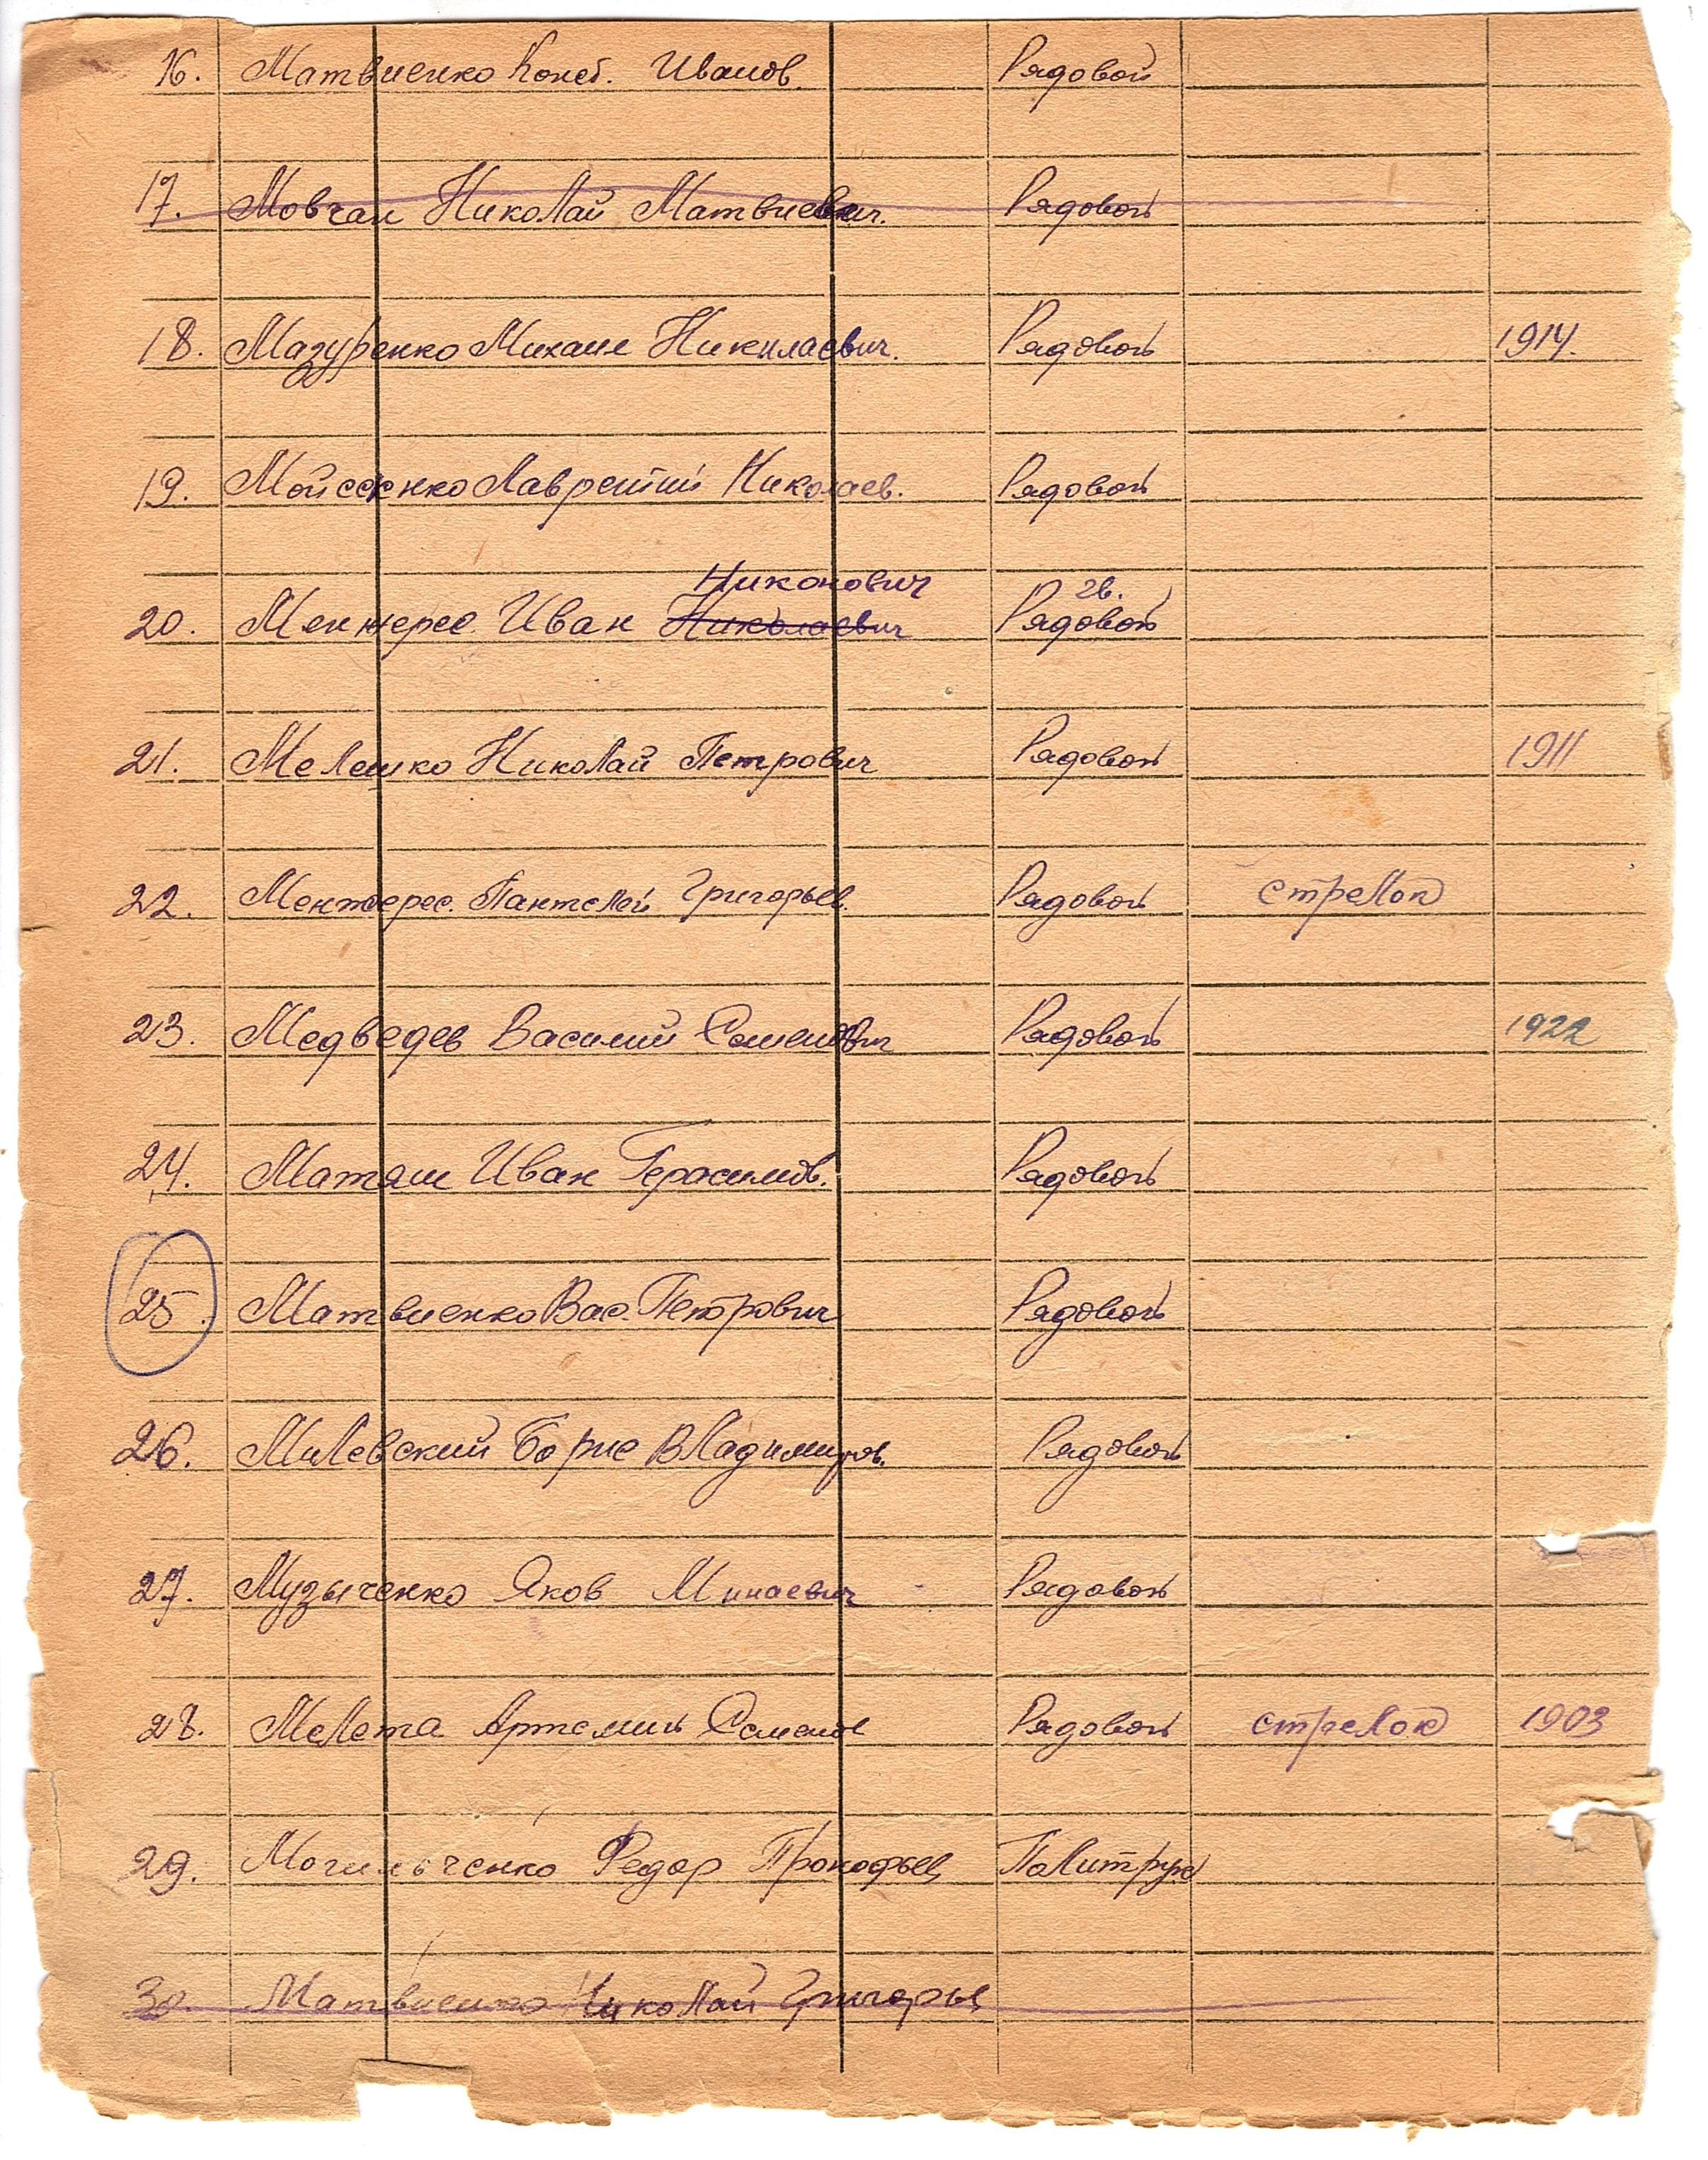 16. Матвиенко Конст. Иванов. Рядовой
17. Мовчан Николай Матвиевич. Рядовой
18. Мазуренко Михаил Николаевич. Рядовой 1914.
19. Мойсеенко Лаврентий Николаев. Рядовой
Никонович гв.
20. Менжерес Иван Николаевич Рядовой
21. Мелешко Николай Петрович Рядовой 1911
22. Менжерес Пантелей Григорьев. Рядовой стрелок
23. Медведев Василий Семенович Рядовой 1922
24. Матяш Иван Герасимов. Рядовой
25. Матвиенко Вас. Петрович Рядовой
26. Милевский Борис Владимиров. Рядовой
27. Музыченко Яков Минаевич Рядовой
28. Мелета Артемий Семенов Рядовой стрелок 1903
29. Могильченко Федор Прокофьев Политрук
30. Матвиенко Николай Григорьев